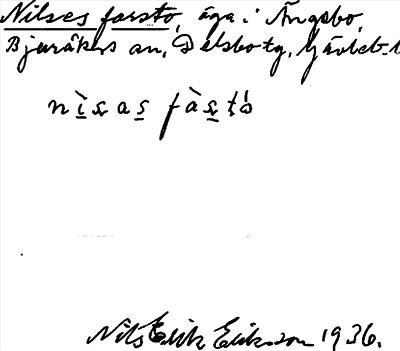 Nilses farsto, äga i Ängebo,
Bjuråkers sn, Delsbo tg, Gävleb. l
nisas fàsto
Nils Erik Eriksson 1936.